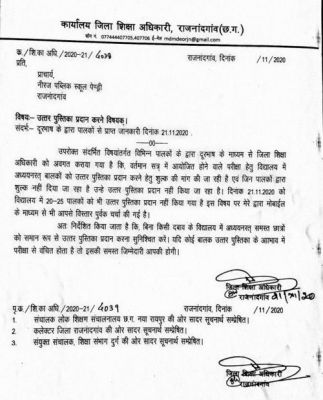 कार्यालय जिला शिक्षा अधिकारी, राजनांदगांव(छ.ग.)
फोन नं. 07744407705,407706 ई-मेल mdmdeorjn@gmail.com
क./शि.का अधि/2020-21/ 4038 राजनांदगांव, दिनांक /11/2020
प्रति,
प्राचार्य,
नीरज पब्लिक स्कूल पेण्ड्री
राजनांदगांव
विषय:- उत्तर पुस्तिका प्रदान करने विषयक।
संदर्भ:- दूरभाष के द्वारा पालकों से प्राप्त जानकारी दिनांक 21.11.2020 .
--00--
उपरोक्त संदर्भित विषयांतर्गत विभिन्न पालकों के द्वारा दूरभाष के माध्यम से जिला शिक्षा
अधिकारी को अवगत कराया गया है कि, वर्तमान सत्र में आयोजित होने वाले परीक्षा हेतु विद्यालय में
अध्ययनरत् बालकों को उत्तर पुस्तिका प्रदान करने हेतु शुल्क की मांग की जा रही है एवं जिन पालकों द्वारा
शुल्क नहीं दिया जा रहा है उन्हे उत्तर पुस्तिका प्रदान नहीं किया जा रहा है। दिनांक 21.11.2020 को
विद्यालय में 20-25 पालकों को भी उत्तर पुस्तिका प्रदान नहीं किया गया है इस विषय पर मेरे द्वारा मोबाईल
के माध्यम से भी आपसे विस्तार पुर्वक चर्चा की गई है।
अतः निर्देशित किया जाता है कि, बिना किसी दबाव के विद्यालय में अध्ययनरत् समस्त छात्रों
को समान रूप से उत्तर पुस्तिका प्रदान करना सुनिश्चित करें। यदि कोई बालक उत्तर पुस्तिका के आभाव में
परीक्षा से वंचित होता है तो इसकी समस्त जिम्मेदारी आपकी होगी।
जिला शिक्षा अधिकारी
राजनांदगांव 21/11/20
पृ.क./शि.का अधि /2020-21/ 4039 राजनांदगांव, दिनांक /11/2020
1. संचालक लोक शिक्षण संचालनालय छ.ग. नवा रायपुर की ओर सादर सूचनार्थ सम्प्रेषित।
2. कलेक्टर जिला राजनांदगांव की ओर सादर सूचनार्थ सम्प्रेषित।
3. संयुक्त संचालक, शिक्षा संभाग दुर्ग की ओर सादर सूचनार्थ सम्प्रेषित।
जिला शिक्षा अधिकारी
राजनांदगांव